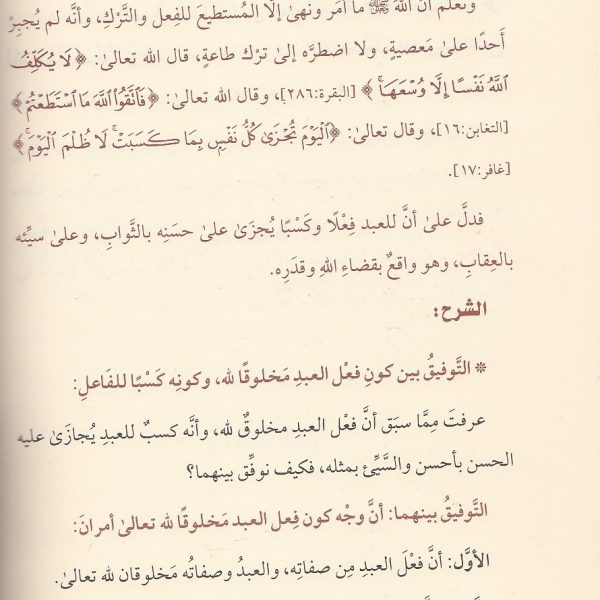 ونعلم أن الله ﷻ ما أمَر ونهىٰ إلَّا المُستطيعَ للفِعل والتَّرْكِ، وأنَّه لم يُجبِرْ
أحدًا علىٰ مَعصيةٍ، ولا اضطرَّه إلىٰ ترْك طاعةٍ، قال الله تعالىٰ: ﴿لَا يُكَلِّفُ
ٱللَّهُ نَفۡسًا إِلَّا وُسۡعَهَاۚ﴾ [البقرة:٢٨٦]، وقال الله تعالىٰ: ﴿فَٱتَّقُواْ ٱللَّهَ مَا ٱسۡتَطَعۡتُمۡ﴾
[التغابن:١٦]، وقال تعالىٰ: ﴿ٱلۡيَوۡمَ تُجۡزَىٰ كُلُّ نَفۡسِۭ بِمَا كَسَبَتۡۚ لَا ظُلۡمَ ٱلۡيَوۡمَۚ﴾
[غافر:١٧].
فدلَّ علىٰ أنَّ للعبد فِعْلًا وكَسْبًا يُجزَىٰ علىٰ حسَنِه بالثَّوابِ، وعلىٰ سيِّئه
بالعِقابِ، وهو واقعٌ بقضاءِ اللهِ وقدَرِه.
الشرح:
* التَّوفيقُ بين كونِ فعْل العبدِ مَخلوقًا لله، وكونِه كَسْبًا للفاعلِ:
عرفتَ مِمَّا سبَق أنَّ فعْل العبدِ مخلوقٌ لله، وأنَّه كسبٌ للعبدِ يُجازَىٰ عليه
الحسن بأحسن والسَّيِّئ بمثله، فكيف نوفِّق بينهما؟
التَّوفيقُ بينهما: أنَّ وجْه كون فِعل العبد مَخلوقًا لله تعالىٰ أمرانَ:
الأوَّل: أنَّ فعْلَ العبدِ مِن صفاتِه، والعبدُ وصفاتُه مَخلوقان لله تعالىٰ.